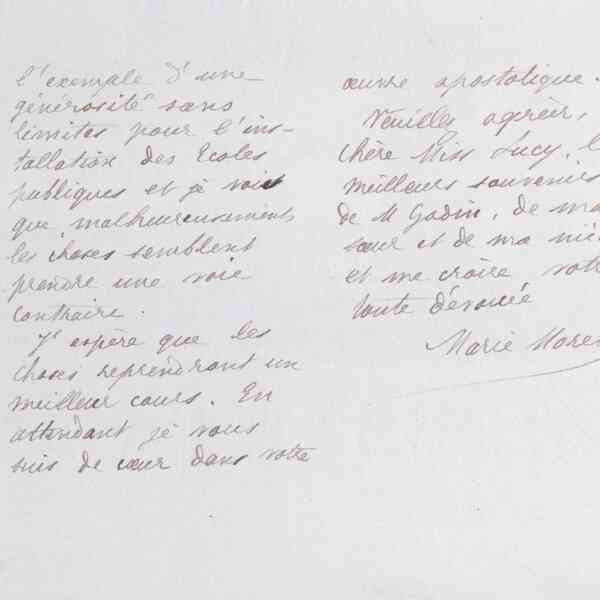 l'exemple d'une
générosité sans
limites pour l'ins-
tallation des Ecoles
publiques et je vois
que, malheureusement
les choses semblent
prendre une voie
contraire.
J'espère que les
choses reprendront un
meilleur cours. En
attendant je vous
suis de cœur dans votre
œuvre apostolique.
Veuillez agréer,
chère Miss Lucy, l
meilleurs souvenirs
de M Godin, de ma
sœur et de ma niè
et me croire votr
toute dévouée
Marie More